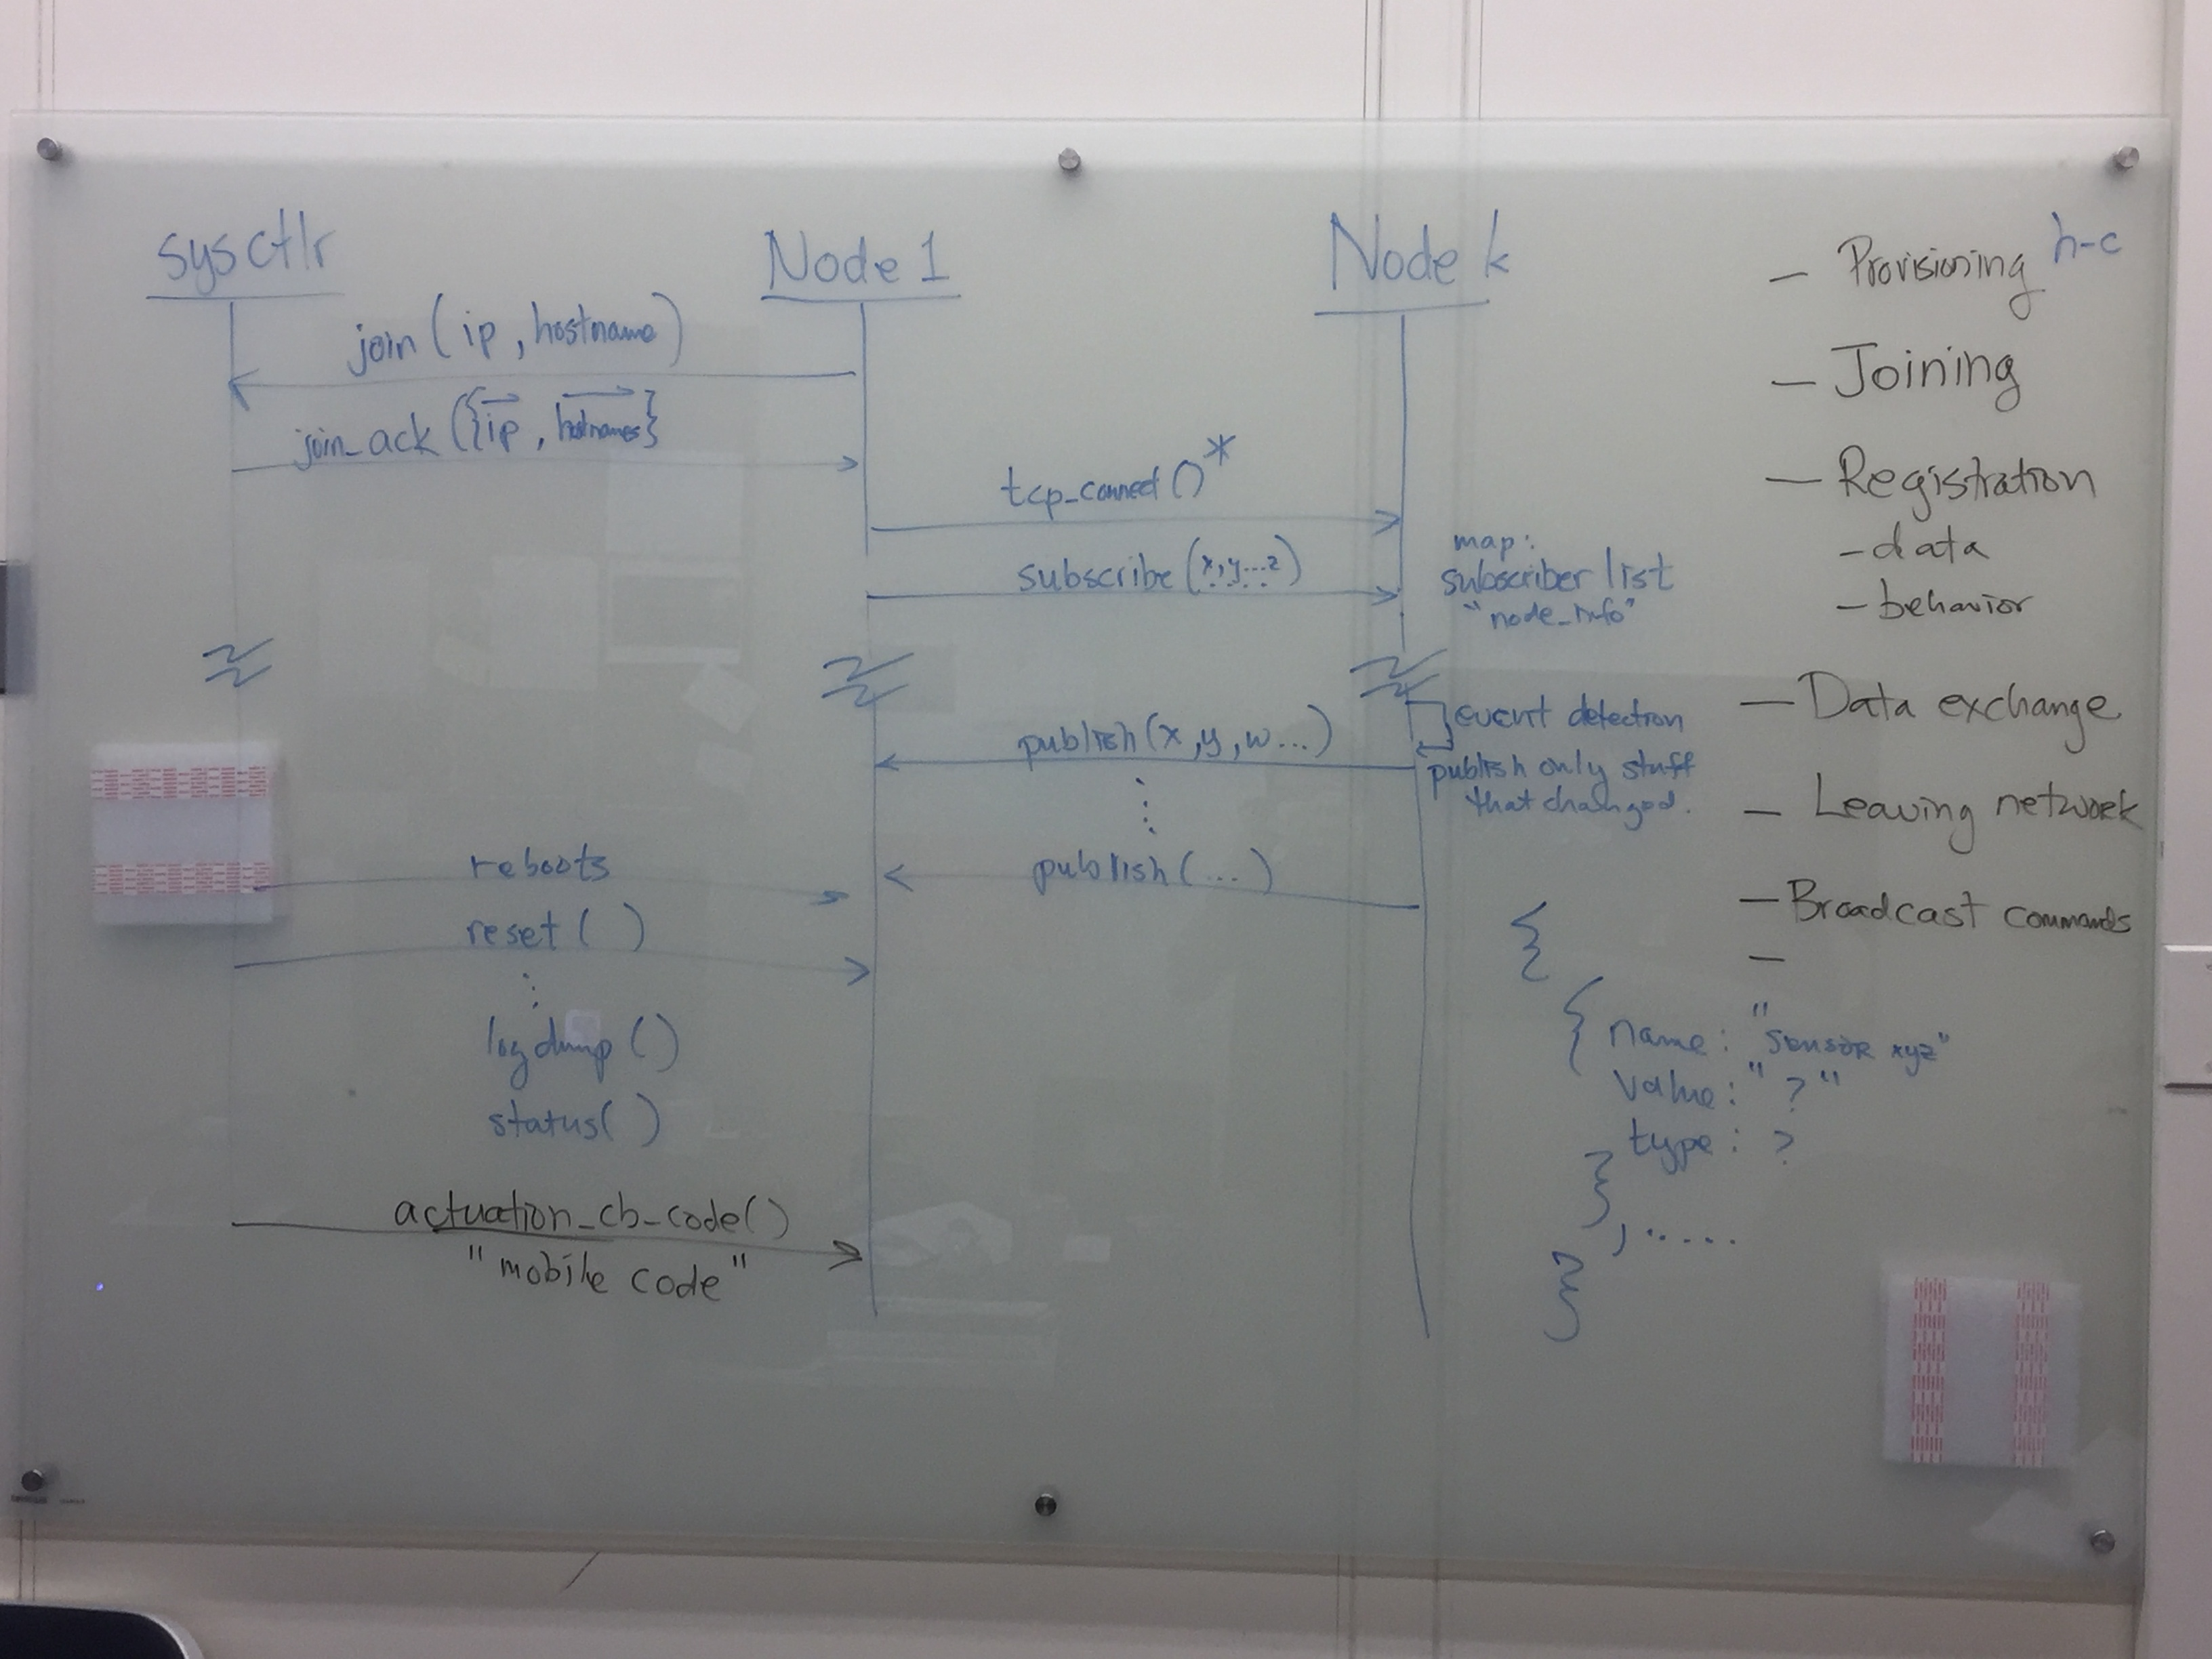 sysctlr
Node 1
Node k
join (ip, hostname)
join_ack ({ip, hostnames}
tcp_connect ()*
subscribe (x, y...z)
map:
subscriber list
"node_info"
event detection
publish (x, y, w...)
publish only stuff
that changed.
publish (...)
reboots
reset ( )
log dump ( )
status( )
actuation_cb_code()
"mobile code"
{
{ name: "sensor xyz"
value: "?"
type: ?
}, .....
}
- Provisioning h-c
- Joining
- Registration
- data
- behavior
- Data exchange
- Leaving network
- Broadcast commands
-